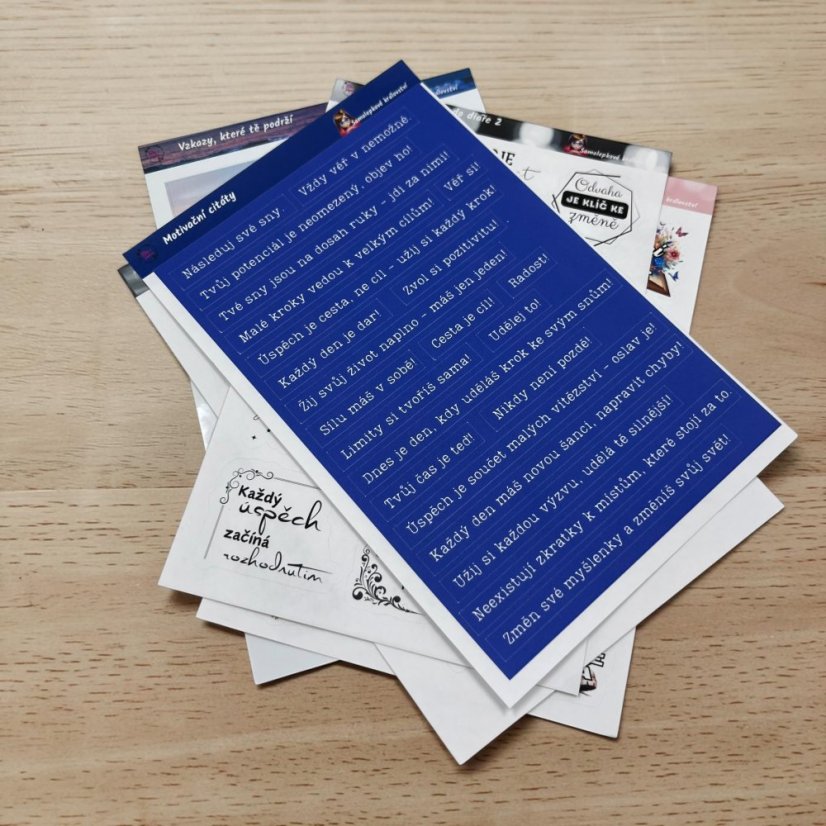 Vzkazy, které tě podrží
Motivační citáty
Samolepkové království
Následuj své sny. Vždy věř v nemožné.
Tvůj potenciál je neomezený, objev ho!
Tvé sny jsou na dosah ruky – jdi za nimi! Věř si!
Malé kroky vedou k velkým cílům!
Úspěch je cesta, ne cíl – užij si každý krok!
Každý den je dar! Zvol si pozitivitu!
Žij svůj život naplno – máš jen jeden!
Sílu máš v sobě! Cesta je cíl! Radost!
Limity si tvoříš sama! Udělej to!
Dnes je den, kdy uděláš krok ke svým snům!
Tvůj čas je teď! Nikdy není pozdě!
Úspěch je součet malých vítězství – oslav je!
Každý den máš novou šanci, napravit chyby!
Užij si každou výzvu, udělá tě silnější!
Neexistují zkratky k místům, které stojí za to.
Změn své myšlenky a změníš svůj svět!
do diáře 2
Samolepkové
Odvaha
JE KLÍČ KE
změně
království
Každý
úspěch
začíná
rozhodnutím